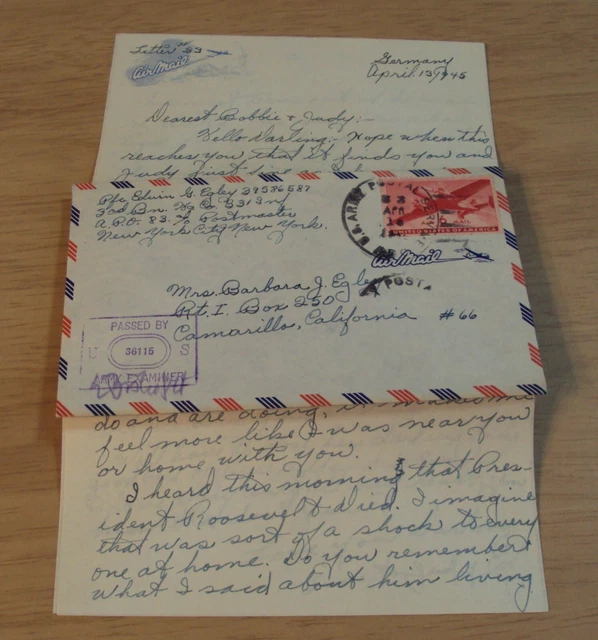 Letter 33
Air Mail
Germany
April 13, 1945
Dearest Bobbie & Judy:-
Hello Darling:- Hope when this
reaches you that it finds you and
Judy just
Pfc. Edwin G. Egley 39586587
3rd Bn. Hq Co 331 Inf
A.P.O. 83. % Postmaster
New York City New York.
U.S. ARMY POSTAL SERVICE
APR
AIR MAIL
UNITED STATES OF AMERICA
Air Mail
POSTA
Mrs. Barbara J. Egley
Rt. 1. Box 250
Camarillo, California #66
PASSED BY
U 36115 S
ARMY EXAMINER
do and are doing, it makes me
feel more like I was near you
or home with you.
I heard this morning that Pres-
ident Roosevelt died. I imagine
that was sort of a shock to every
one at home. Do you remember
what I said about him living